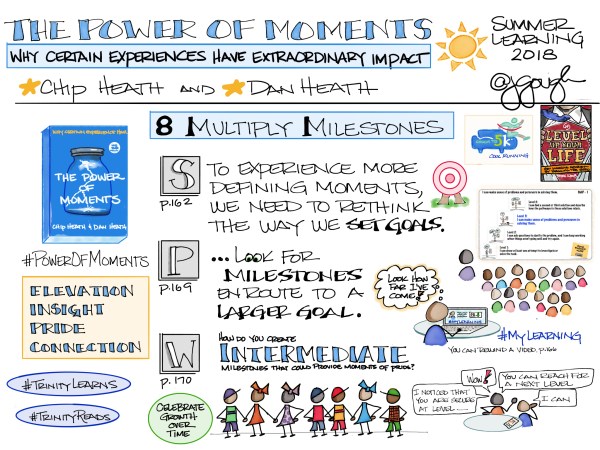 THE POWER OF MOMENTS
WHY CERTAIN EXPERIENCES HAVE EXTRAORDINARY IMPACT
CHIP HEATH AND DAN HEATH
SUMMER
LEARNING
2018
@jgough
8 MULTIPLY MILESTONES
THE POWER
OF
MOMENTS
CHIP HEATH & DAN HEATH
#POWEROFMOMENTS
ELEVATION
INSIGHT
PRIDE
CONNECTION
#TRINITYLEARNS
#TRINITYREADS
S
P.162
TO EXPERIENCE MORE
DEFINING MOMENTS,
WE NEED TO RETHINK
THE WAY WE SET GOALS.
P
P.169
...LOOK FOR
MILESTONES
EN ROUTE TO A
LARGER GOAL.
W
P.170
HOW DO YOU CREATE
INTERMEDIATE
MILESTONES THAT COULD PROVIDE MOMENTS OF PRIDE?
CELEBRATE
GROWTH
OVER
TIME
5K
COOL RUNNING
LEVEL
UP YOUR
LIFE
LOOK HOW
FAR I'VE
COME!
#MYLEARNING
YOU CAN REWIND A VIDEO. P.166
WOW!
YOU CAN REACH FOR
A NEXT LEVEL
I NOTICED THAT
YOU ARE SECURE
AT LEVEL
I CAN